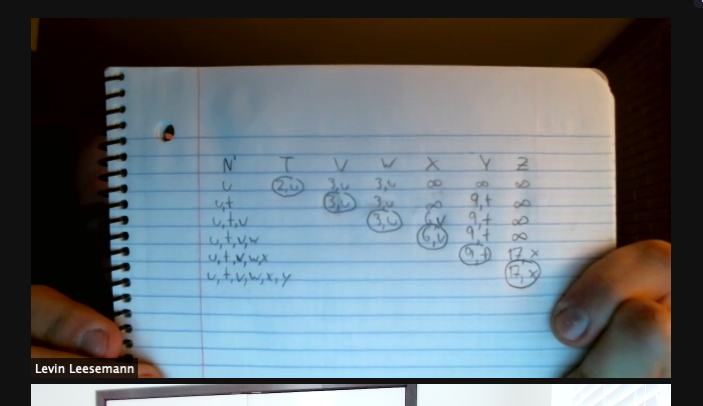 N' T V W X Y Z
u 2,u 3,u 3,u ∞ ∞ ∞
u,t 3,u 3,u ∞ 9,t ∞
u,t,v 3,u 6,v 9,t ∞
u,t,v,w 6,v 9,t ∞
u,t,v,w,x 9,t 17,x
u,t,v,w,x,y 17,x
Levin Leesemann